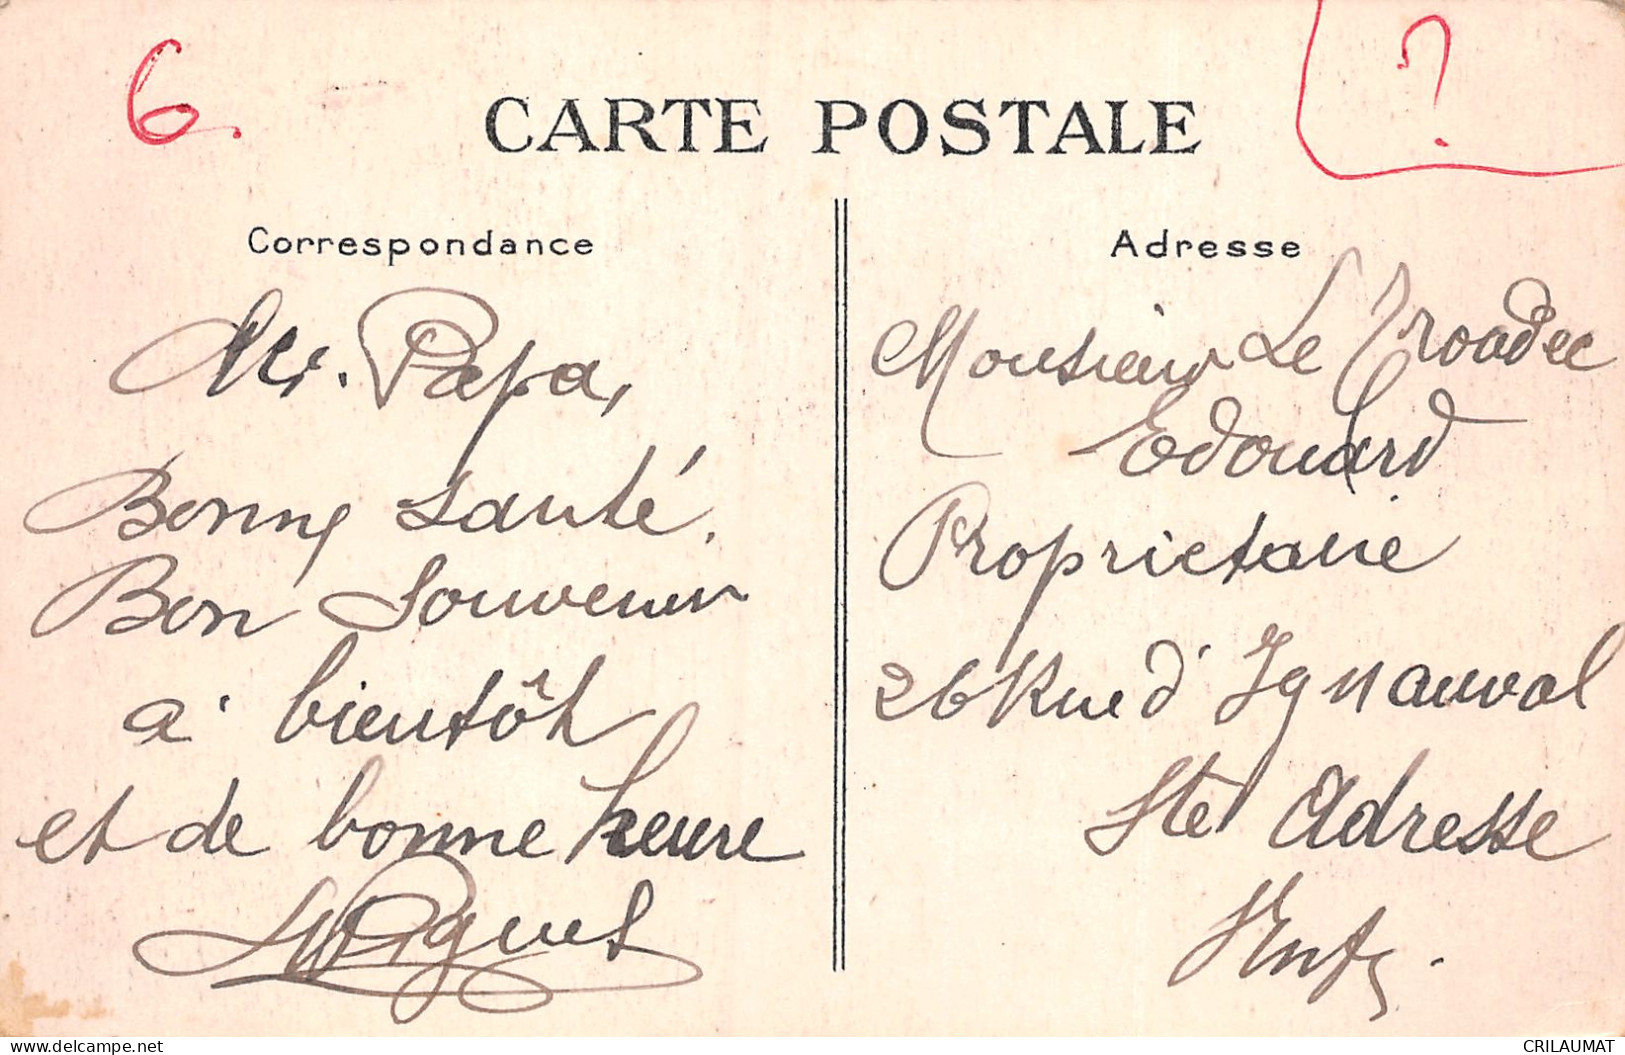 6.
?
CARTE POSTALE
Correspondance
Adresse
Mr. Papa,
Bonne Santé.
Bon Souvenir
a bientôt
et de bonne heure
Monsieur Le Troadec
Edouard
Proprietaire
26 Rue d' Ignauval
Ste Adresse
delcampe.net
CRILAUMAT